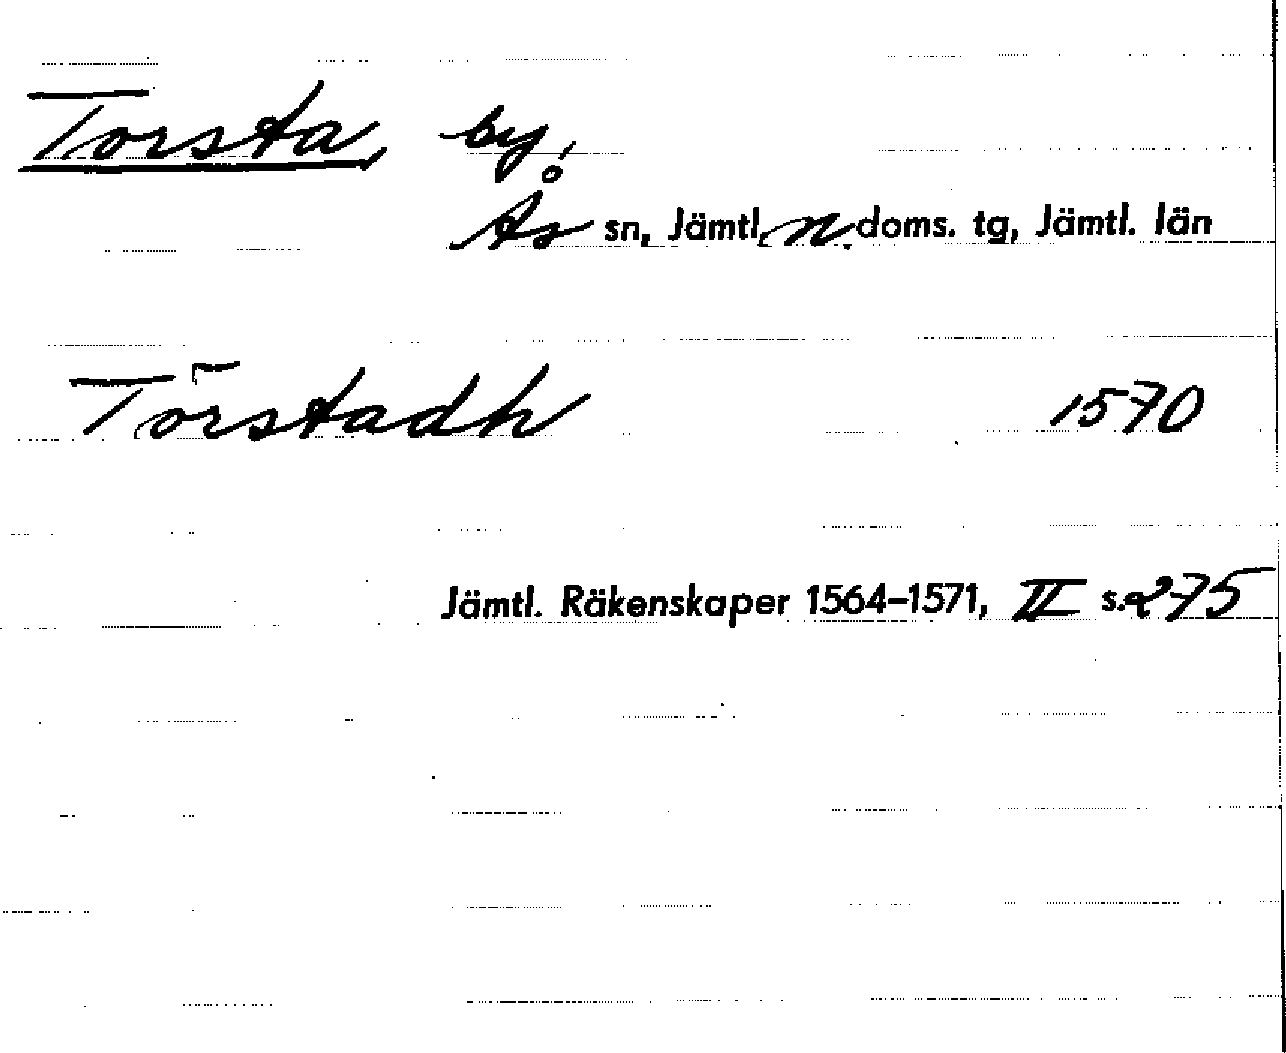 Torsta, by,
Ås sn, Jämtl. n. doms. tg, Jämtl. län
Törstadh 1570
Jämtl. Räkenskaper 1564–1571, II s. 275